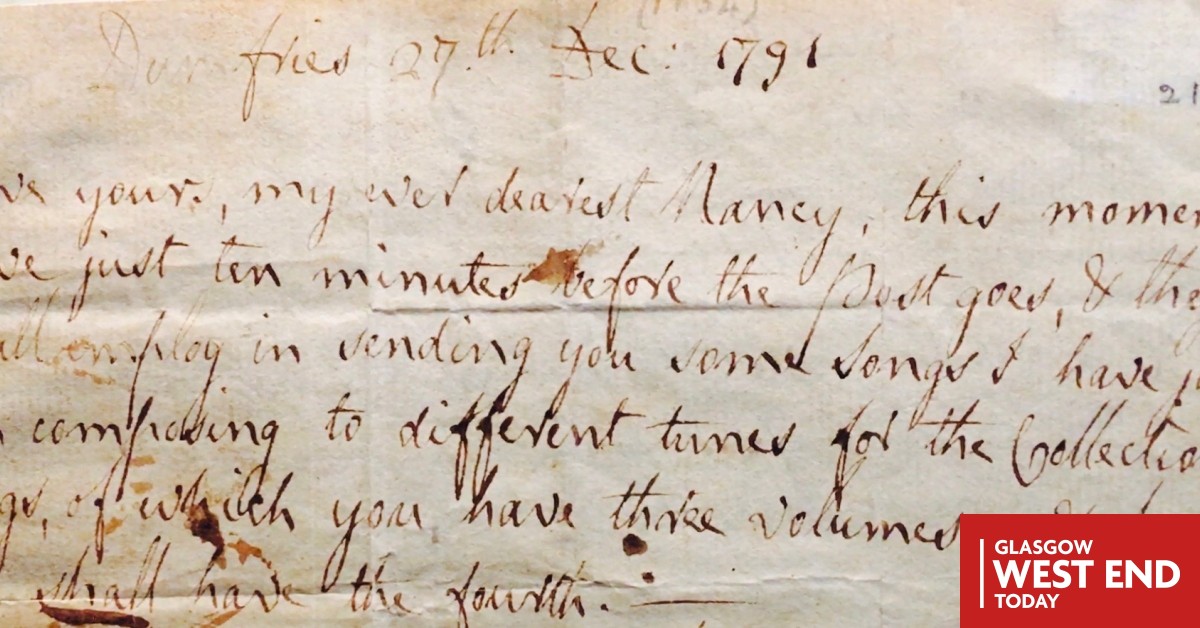 Dumfries 27.th Dec: 1791
21
ve yours, my ever dearest Nancy, this momen
ve just ten minutes before the Post goes, & the
all employ in sending you some songs I have j
composing to different tunes for the Collectio
gs, of which you have three volumes
shall have the fourth. —
GLASGOW
WEST END
TODAY